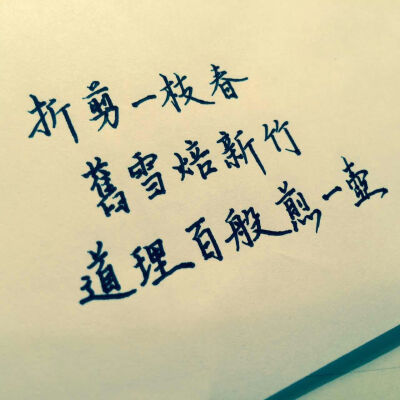 折剪一枝春
舊雪焙新竹
道理百般煎一壺